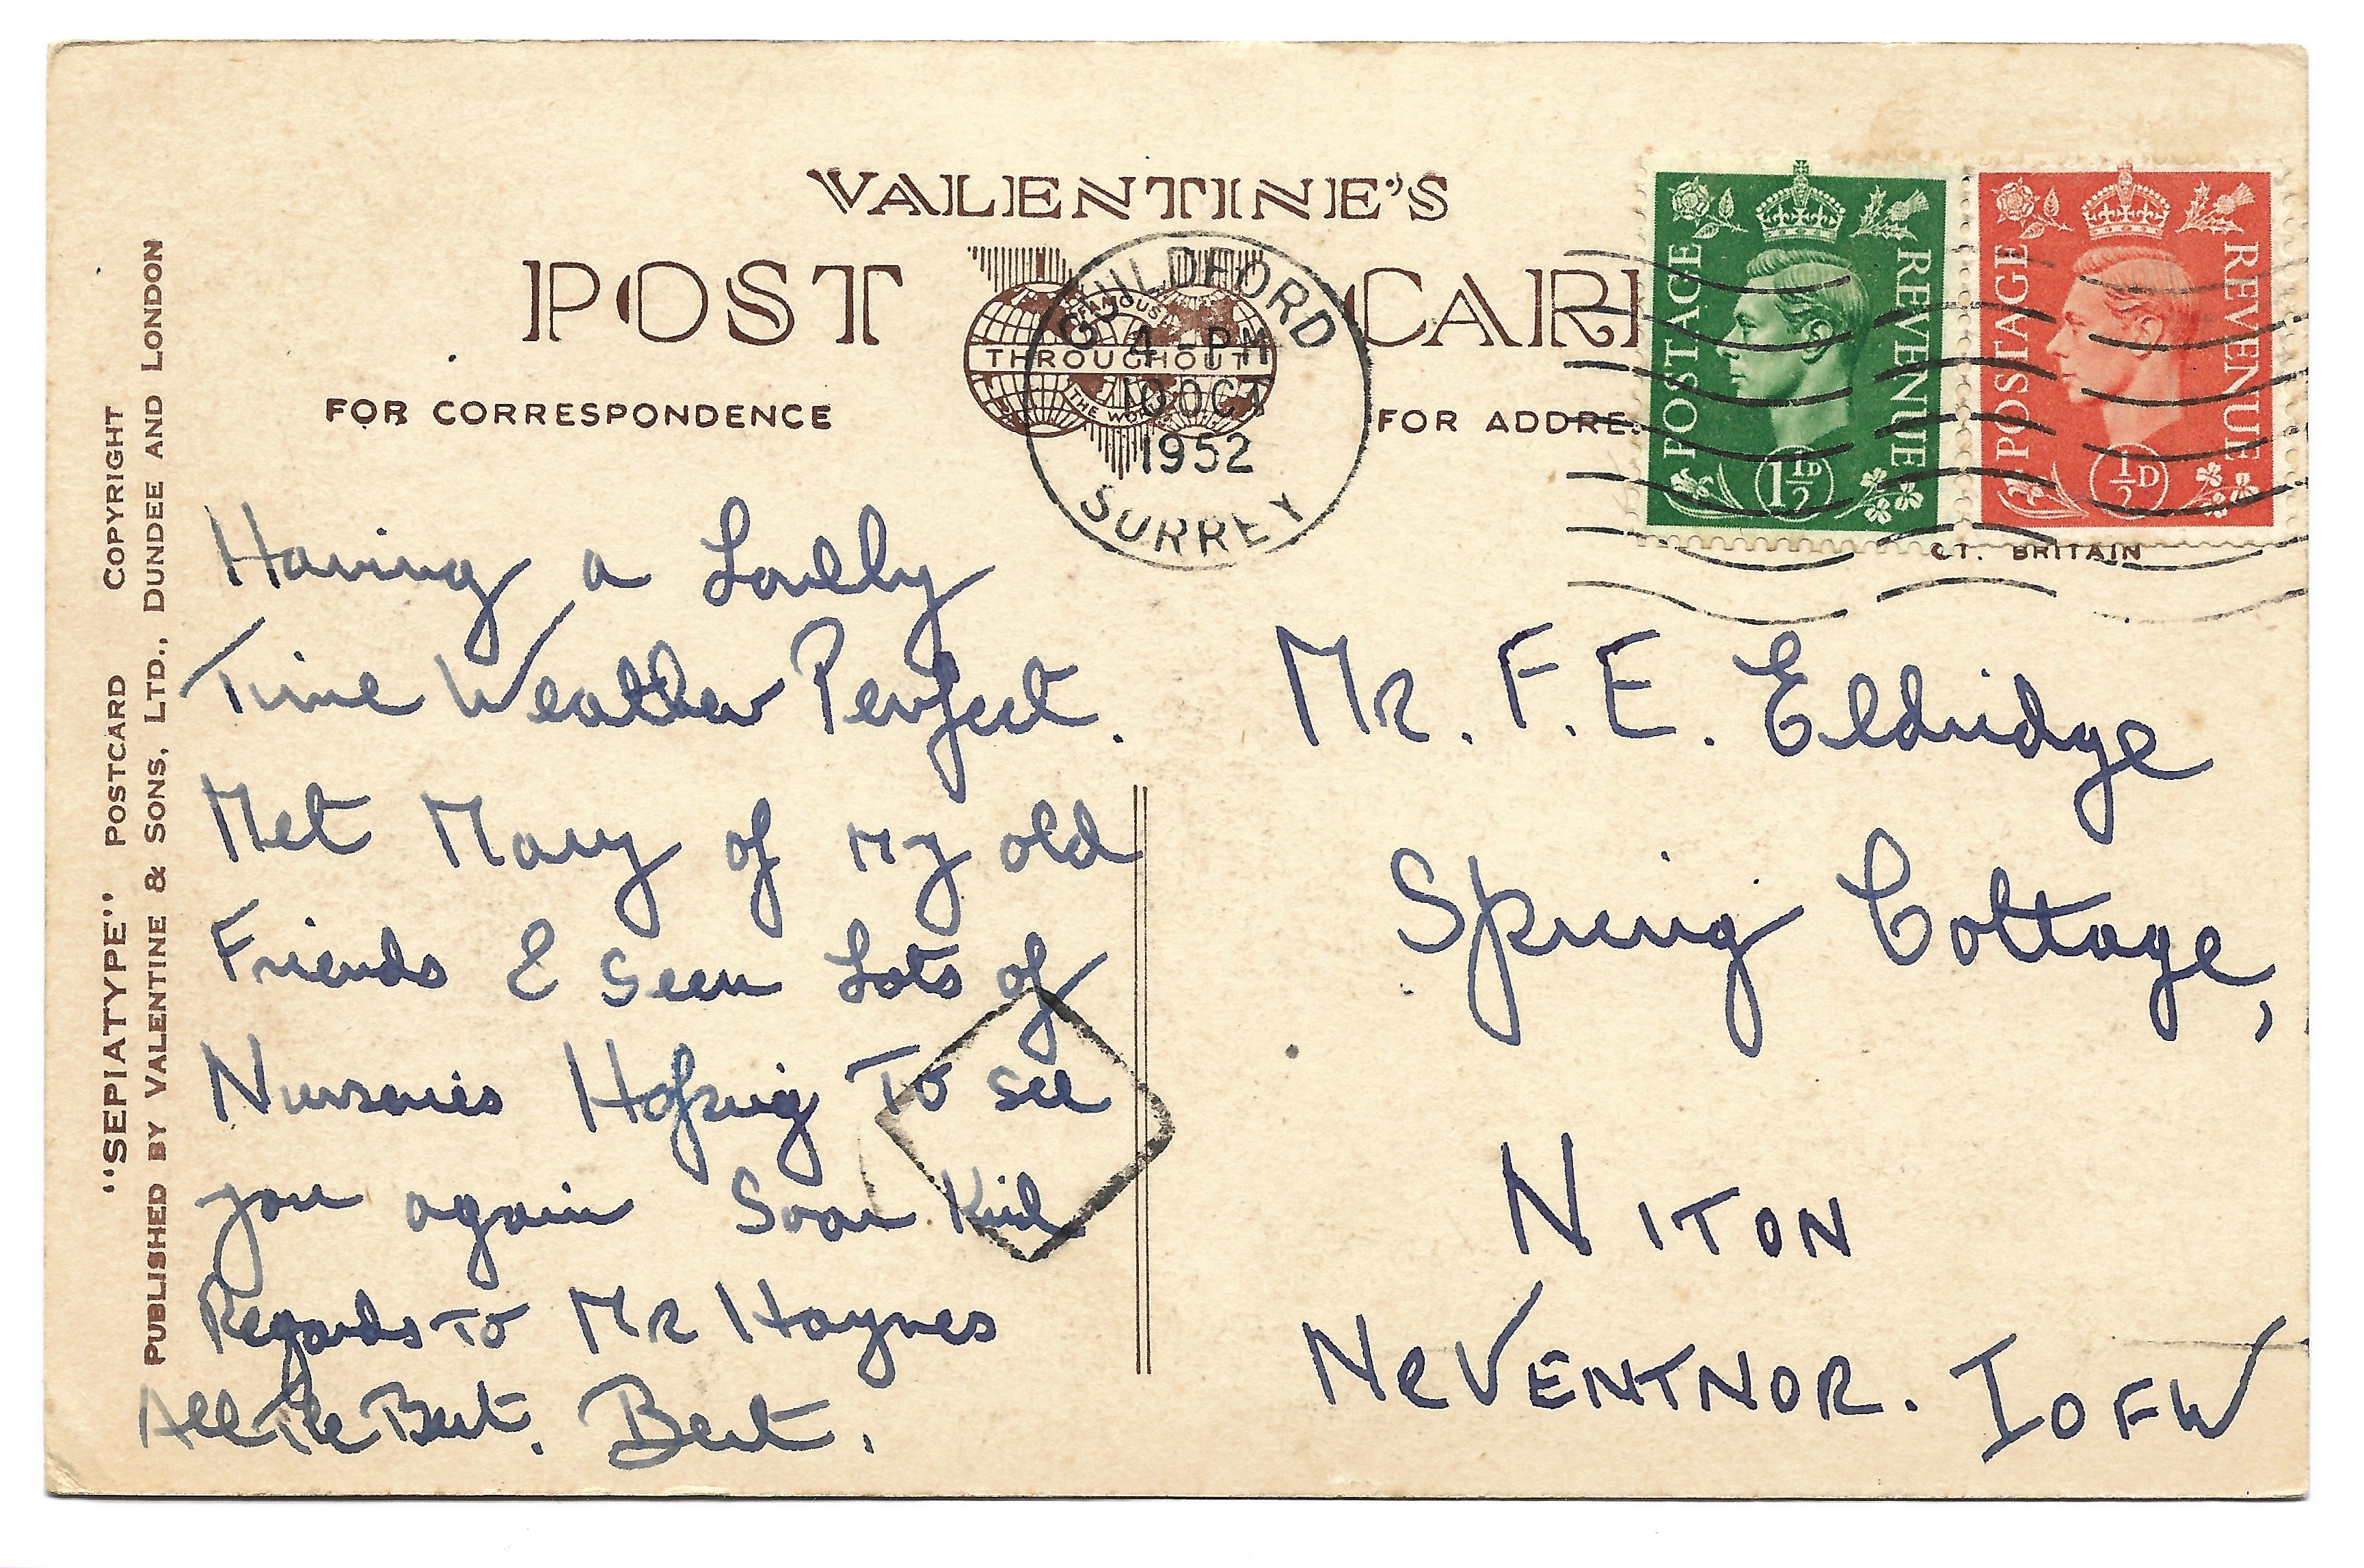 VALENTINE'S
POST CAR
FAMOUS
THROUGHOUT
THE WO
FOR CORRESPONDENCE
FOR ADDRE
GUILDFORD
4 - PM
10 OCT
1952
SURREY
POSTAGE REVENUE
1½D
POSTAGE REVENUE
½D
GT. BRITAIN
"SEPIATYPE" POSTCARD COPYRIGHT
PUBLISHED BY VALENTINE & SONS, LTD., DUNDEE AND LONDON
Having a Lovelly
Time Weather Perfect.
Met Many of my old
Friends & Seen Lots of
Nurseries Hoping To see
you again Soon. Kind
Regards To MR Haynes
All The Best. Bert.
MR. F. E. Eldridge
Spring Cottage,
NITON
NR VENTNOR. I OF W